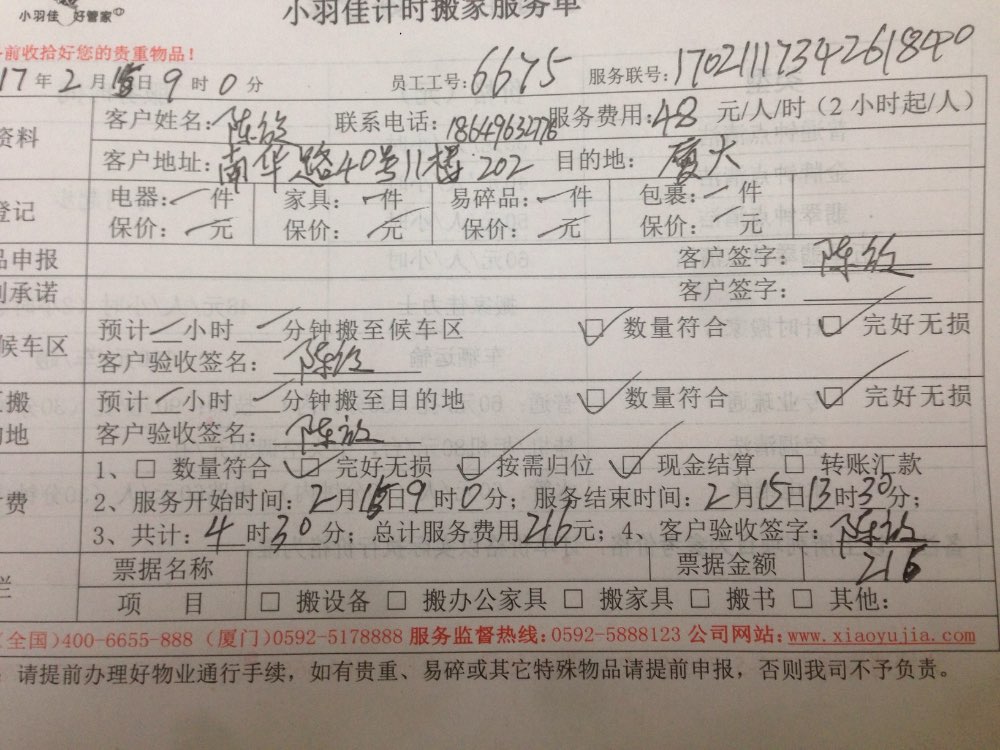 小羽佳 好管家
小羽佳计时搬家服务单
前收拾好您的贵重物品!
17年2月15日9时0分 员工工号:6675 服务联号:1702111734261840
资料 客户姓名: 联系电话:18649632776 服务费用:48 元/人/时(2小时起/人)
客户地址:南华路40号11楼202 目的地: 厦大
登记 电器: 件 家具: 件 易碎品: 件 包裹: 件
保价: 元 保价: 元 保价: 元 保价: 元
品申报 客户签字:
则承诺 客户签字:
候车区 预计 小时 分钟搬至候车区 □ 数量符合 □ 完好无损
客户验收签名:
搬 预计 小时 分钟搬至目的地 □ 数量符合 □ 完好无损
的地 客户验收签名:
1、□ 数量符合 □ 完好无损 □ 按需归位 □ 现金结算 □ 转账汇款
费 2、服务开始时间:2月15日9时0分;服务结束时间:2月15日13时30分;
3、共计:4时30分;总计服务费用216元;4、客户验收签字:
票据名称 票据金额 216
栏 项 目 □ 搬设备 □ 搬办公家具 □ 搬家具 □ 搬书 □ 其他:
(全国)400-6655-888 (厦门)0592-5178888 服务监督热线:0592-5888123 公司网站:www.xiaoyujia.com
请提前办理好物业通行手续,如有贵重、易碎或其它特殊物品请提前申报,否则我司不予负责。